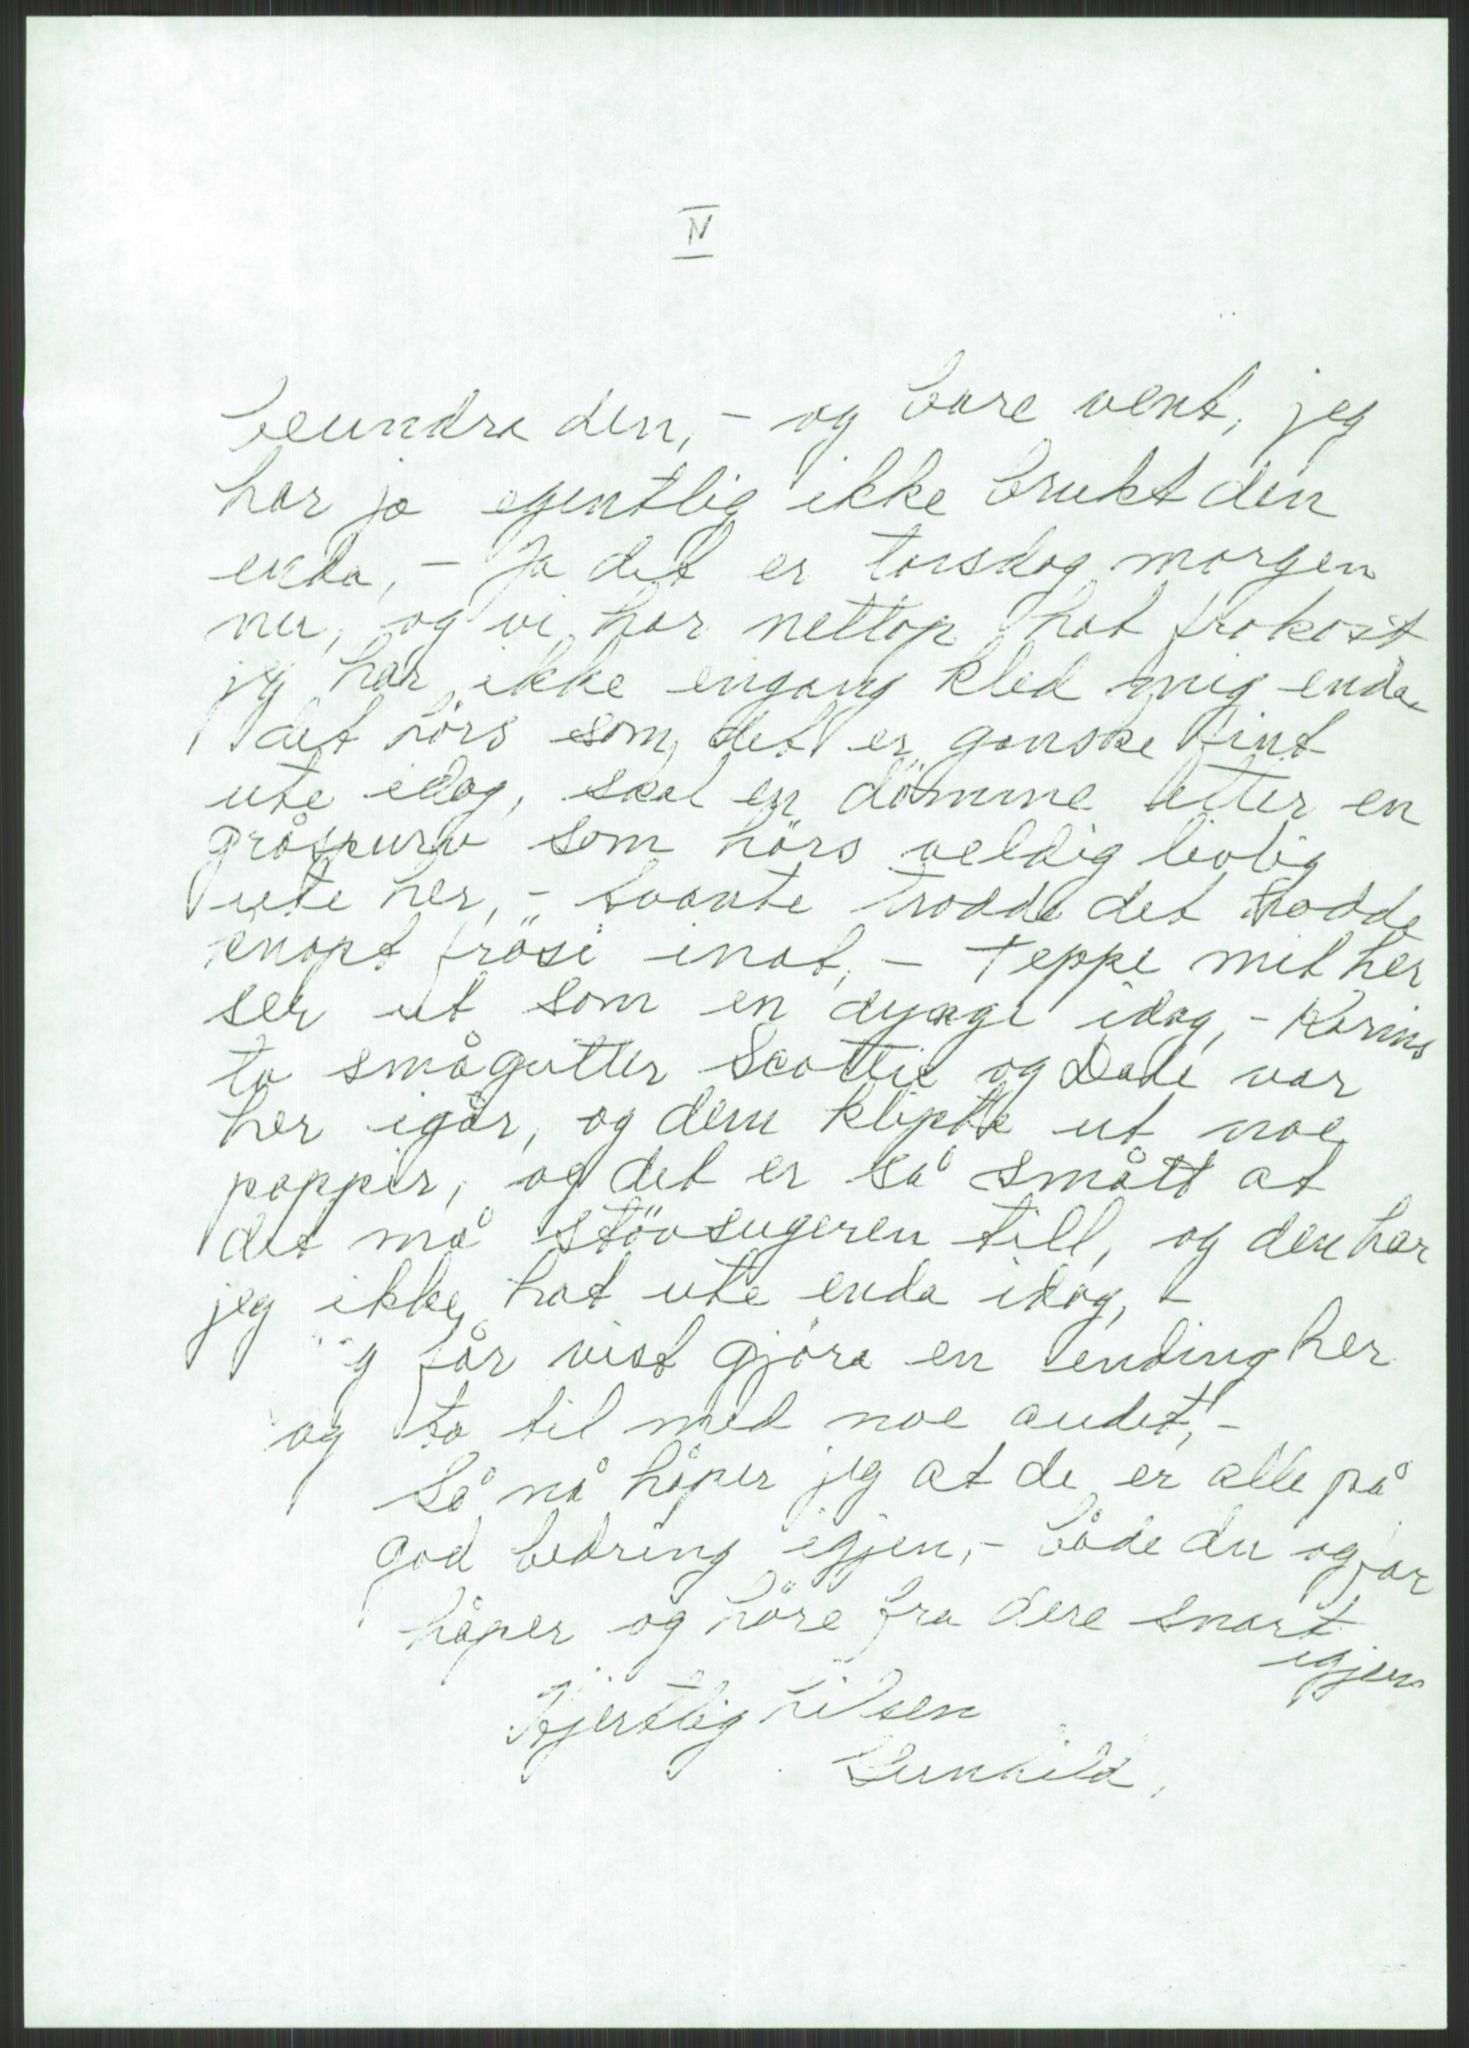 IV
beundra den, - og bare vent, jeg
har jo egentlig ikke brukt den
enda, - Ja det er torsdag morgen
nu, og vi har nettop hat frokost
jeg har ikke engang kled mig enda
det hörs som det er ganske fint
ute idag, skal en dömme etter en
gråspurv som hörs veldig livlig
ute her, - trodde det hadde
knapt frösi inat, - Teppe mit her
ser ut som en dynge idag, - Karins
to smågutter Scottie og Dade var
her igår, og dem klipte ut noe
pappir, og det er så smått at
det må stövsugeren till, og den har
jeg ikke hat ute enda idag, -
får vist gjöra en ending her
og ta til med noe andet, -
Så nå håper jeg at de er alle på
god bedring igjen, - både du og far
håper og höre fra dere snart
igjen
Hjertlig hilsen
Gunhild.